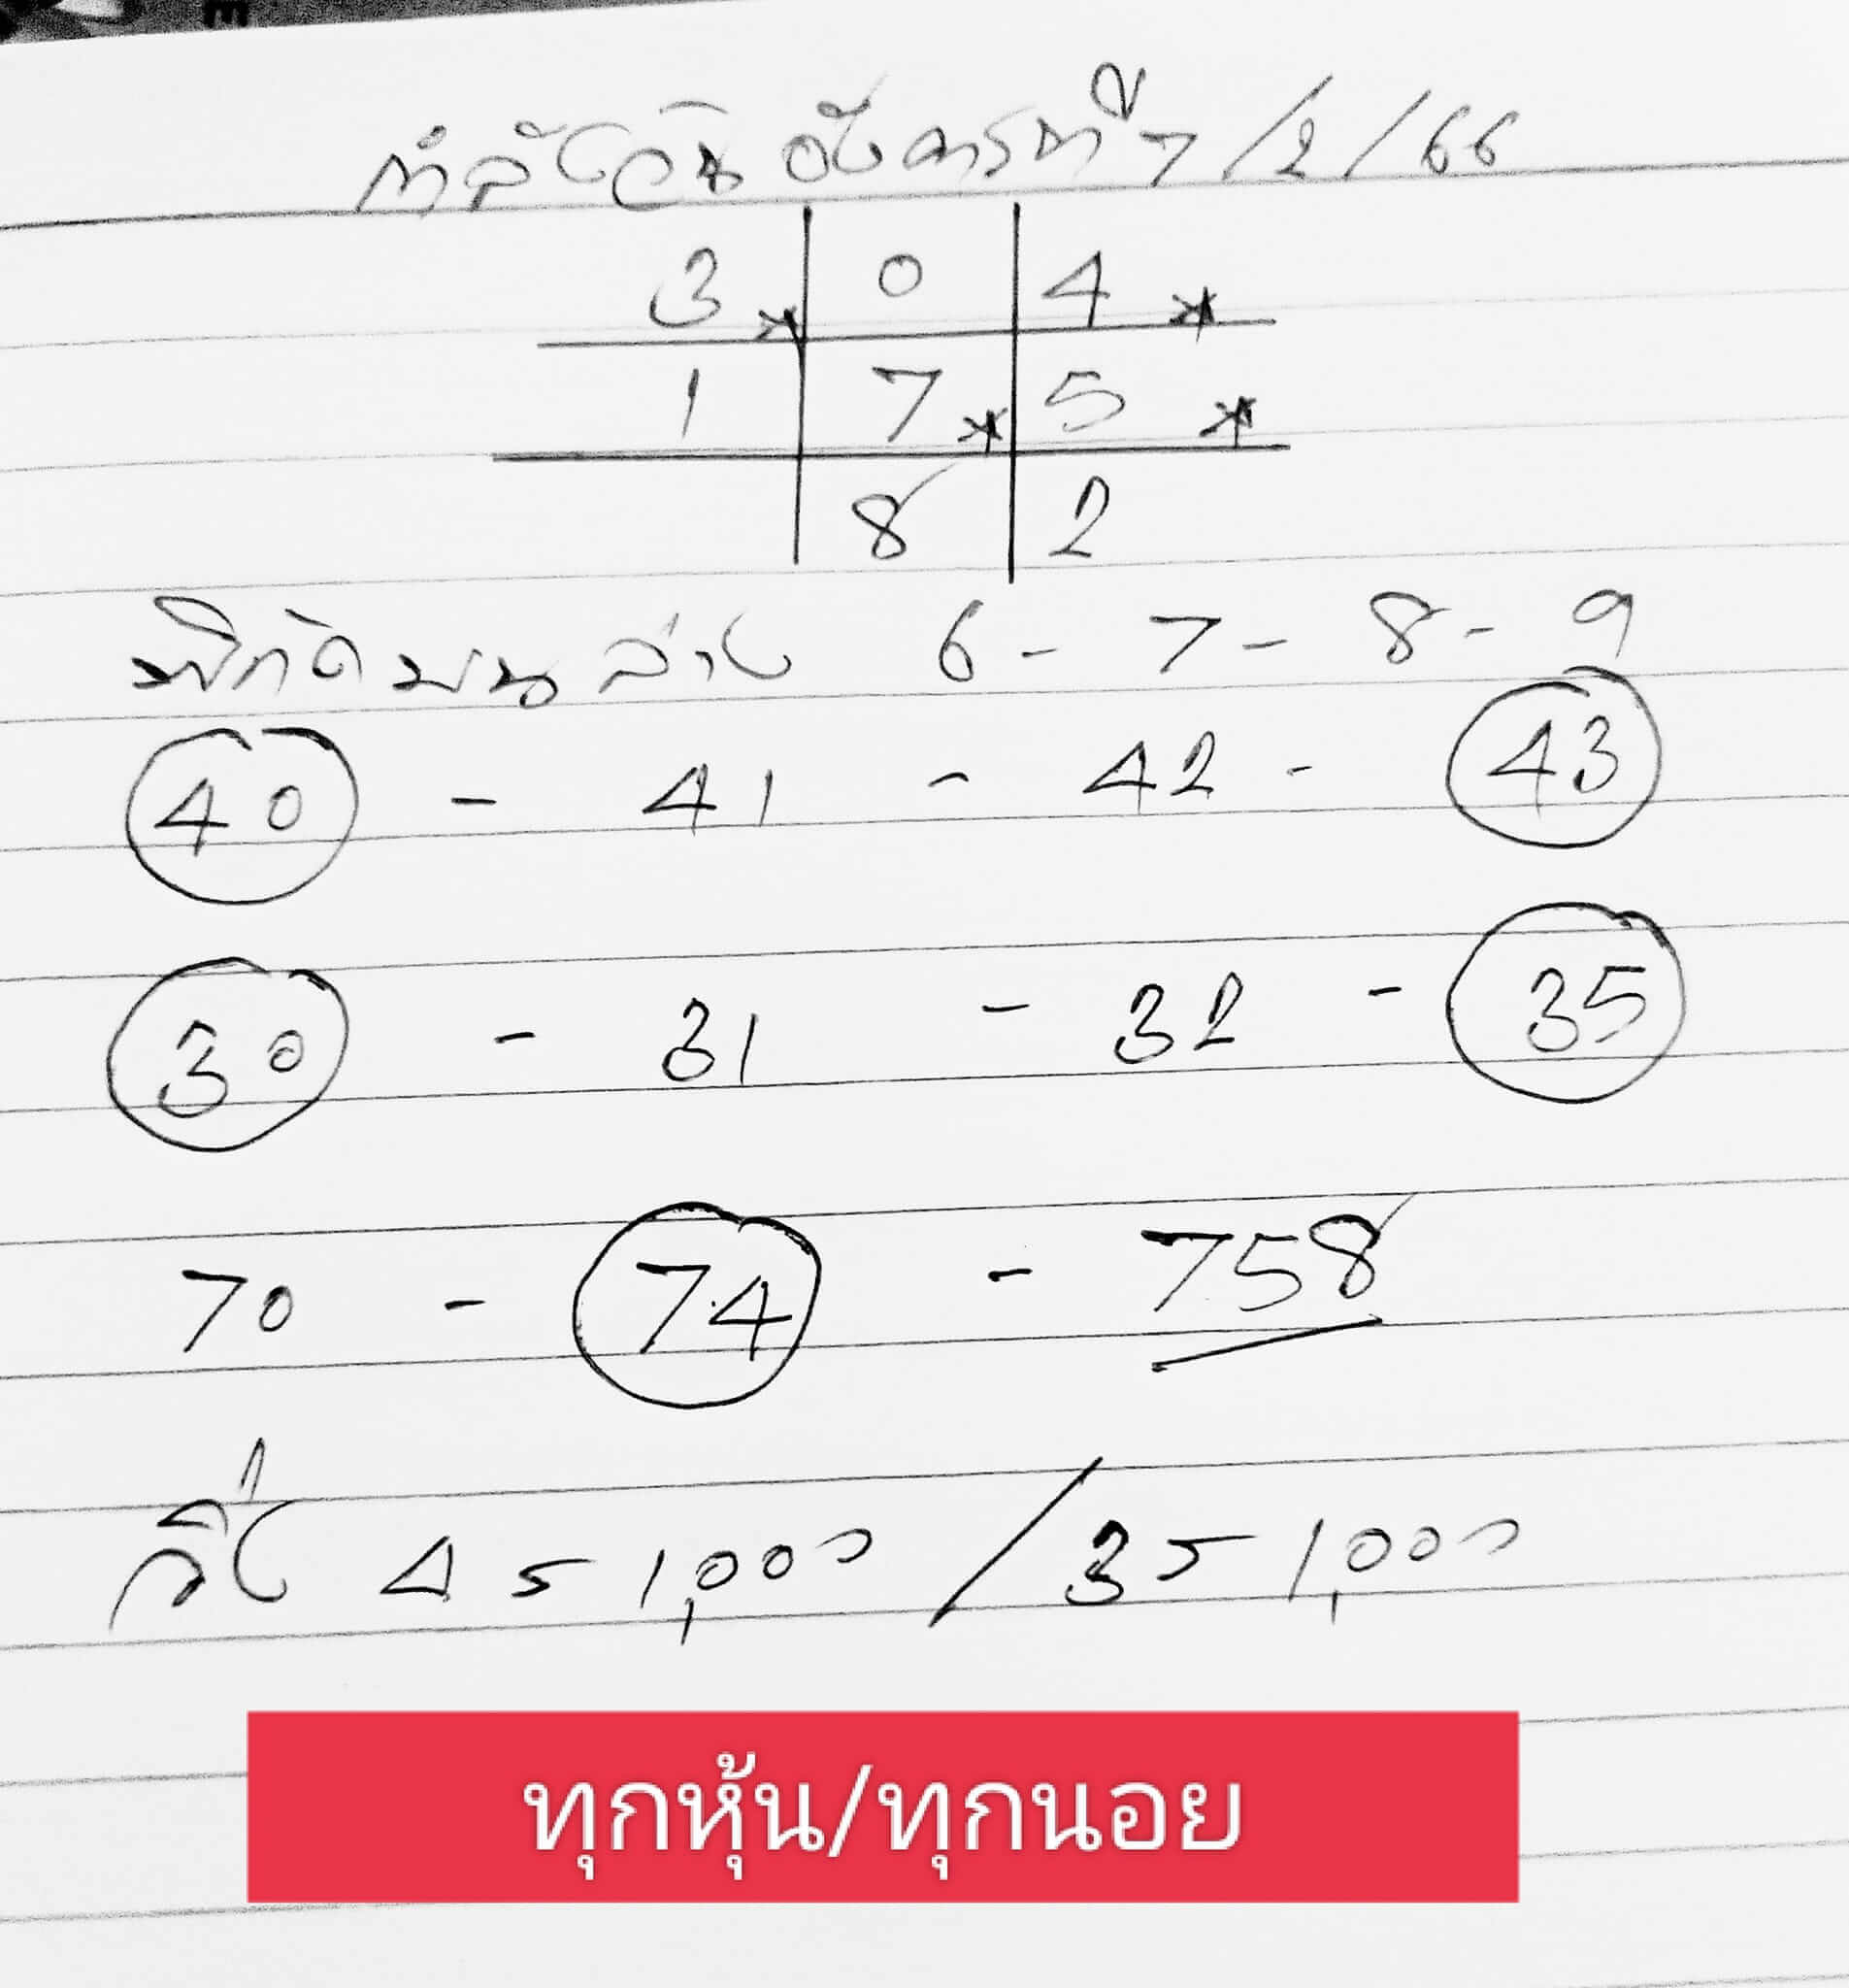 กำลังวันอังคารที่ 7/2/66
3* 0 4*
1 7* 5*
8 2
พิกัดบนล่าง 6-7-8-9
40 - 41 - 42 - 43
30 - 31 - 32 - 35
70 - 74 - 758
45 1,000 / 35 1,000
ทุกหุ้น/ทุกนอย